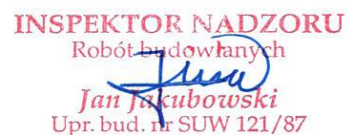 INSPEKTOR NADZORU
Robót budowlanych
Jan Jakubowski
Upr. bud. nr SUW 121/87